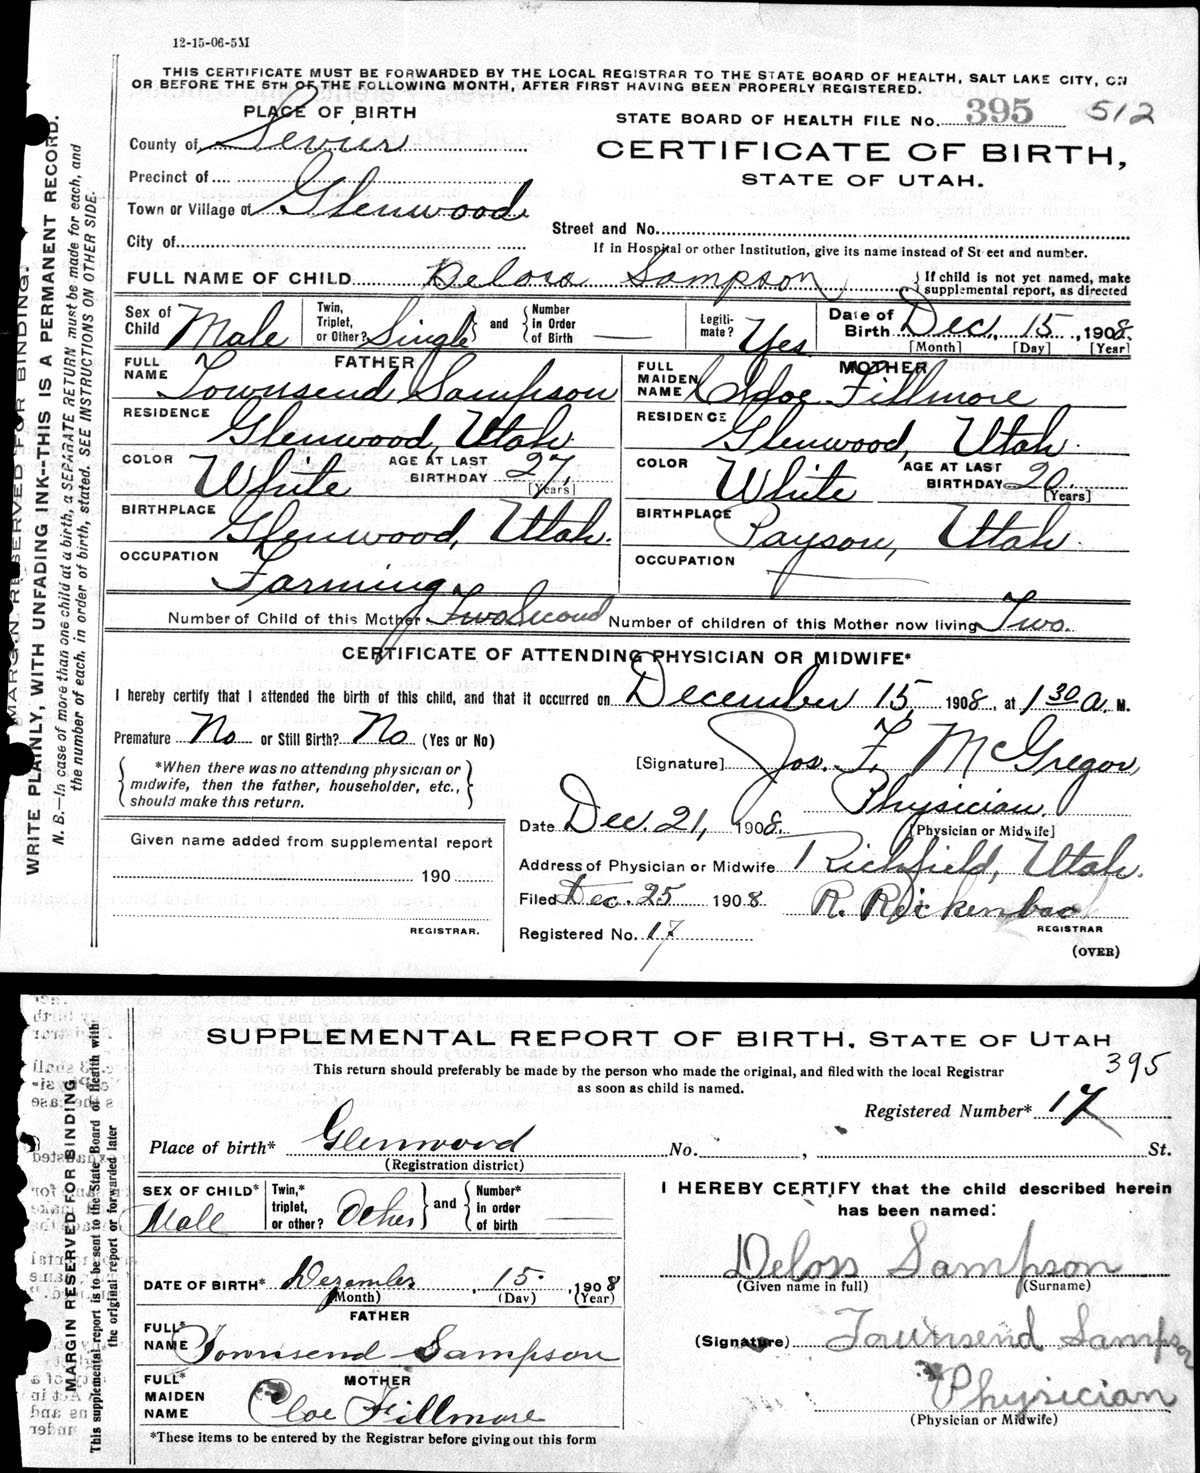 12-15-06-5M
THIS CERTIFICATE MUST BE FORWARDED BY THE LOCAL REGISTRAR TO THE STATE BOARD OF HEALTH, SALT LAKE CITY, ON
OR BEFORE THE 5TH OF THE FOLLOWING MONTH, AFTER FIRST HAVING BEEN PROPERLY REGISTERED.
PLACE OF BIRTH
STATE BOARD OF HEALTH FILE No. 395 512
County of Sevier
CERTIFICATE OF BIRTH,
STATE OF UTAH.
Precinct of
Town or Village of Glenwood
Street and No.
City of
If in Hospital or other Institution, give its name instead of Street and number.
FULL NAME OF CHILD Deloss Sampson { If child is not yet named, make supplemental report, as directed
Sex of Child Male Twin, Triplet, or Other? Single } and { Number in Order of Birth — Legitimate? Yes Date of Birth Dec. 15, 1908.
[Month] [Day] [Year]
FATHER
FULL NAME Townsend Sampson
RESIDENCE Glenwood, Utah.
COLOR White AGE AT LAST BIRTHDAY 27, [Years]
BIRTHPLACE Glenwood, Utah.
OCCUPATION Farming
MOTHER
FULL MAIDEN NAME Chloe Fillmore
RESIDENCE Glenwood, Utah.
COLOR White AGE AT LAST BIRTHDAY 20. [Years]
BIRTHPLACE Payson, Utah
OCCUPATION —
Number of Child of this Mother Two Second Number of children of this Mother now living Two.
CERTIFICATE OF ATTENDING PHYSICIAN OR MIDWIFE*
I hereby certify that I attended the birth of this child, and that it occurred on December 15, 1908, at 1 30 a. M.
Premature No or Still Birth? No (Yes or No)
[Signature] Jos. F. McGregor,
Physician.
[Physician or Midwife]
{ *When there was no attending physician or midwife, then the father, householder, etc., should make this return. }
Date Dec. 21, 1908.
Given name added from supplemental report
190
REGISTRAR.
Address of Physician or Midwife Richfield, Utah.
Filed Dec. 25 1908 R. Rickenbac
REGISTRAR
Registered No. 17
(OVER)
MARGIN RESERVED FOR BINDING.
WRITE PLAINLY, WITH UNFADING INK--THIS IS A PERMANENT RECORD.
N. B.—In case of more than one child at a birth, a SEPARATE RETURN must be made for each, and
the number of each, in order of birth, stated. SEE INSTRUCTIONS ON OTHER SIDE.
SUPPLEMENTAL REPORT OF BIRTH, STATE OF UTAH
This return should preferably be made by the person who made the original, and filed with the local Registrar
as soon as child is named.
395
Registered Number* 17
Place of birth* Glenwood No. , St.
(Registration district)
SEX OF CHILD* Male Twin,* triplet, or other? Other } and { Number* in order of birth —
I HEREBY CERTIFY that the child described herein
has been named:
Deloss Sampson
(Given name in full) (Surname)
DATE OF BIRTH* Dezember 15. 1908
(Month) (Day) (Year)
FATHER
FULL* NAME Townsend Sampson
(Signature) Townsend Sampson
Physician
(Physician or Midwife)
MOTHER
FULL* MAIDEN NAME Cloe Fillmore
*These items to be entered by the Registrar before giving out this form
MARGIN RESERVED FOR BINDING
This supplemental report is to be sent to the State Board of Health with
the original report or forwarded later